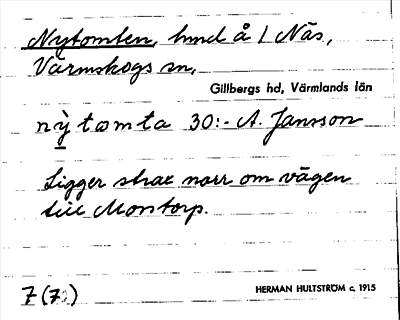 Nytomten, hmd å 1 Näs,
Värmskogs sn,
Gillbergs hd, Värmlands län
nỳtomta 30:- A. Jansson
Ligger strax norr om vägen
till Monstorp.
7(7)
HERMAN HULTSTRÖM c. 1915